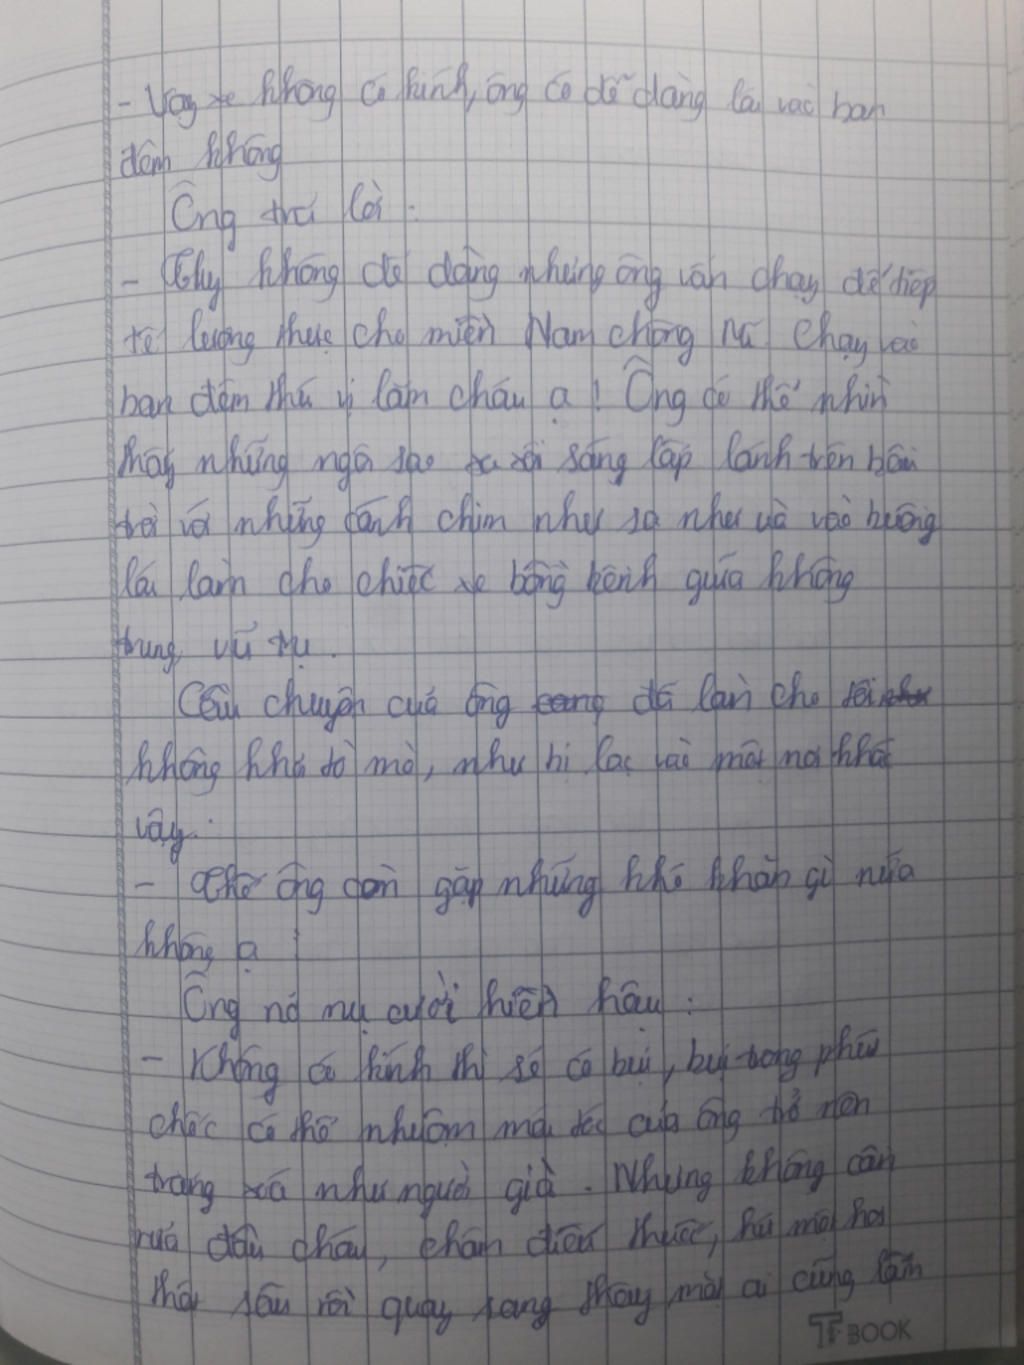 - Vậy xe không có kính, ông có dễ dàng lái vào ban
đêm không
Ông trả lời:
- Tuy không dễ dàng nhưng ông vẫn chạy để tiếp
tế lương thực cho miền Nam chống Mĩ. Chạy vào
ban đêm thú vị lắm cháu ạ! Ông có thể nhìn
thấy những ngôi sao xa xôi sáng lấp lánh trên bầu
trời với những cánh chim như sa như ùa vào buồng
lái làm cho chiếc xe bồng bềnh giữa không
trung, vũ trụ.
Câu chuyện của ông đã làm cho tôi
không khỏi tò mò, như bị lạc vào một nơi khác
vậy.
- Thế ông còn gặp những khó khăn gì nữa
không ạ
Ông nở nụ cười hiền hậu:
- Không có kính thì sẽ có bụi, bụi trong phút
chốc có thể nhuộm mái tóc của ông trở nên
trắng xóa như người già. Nhưng không cần
rửa đâu cháu, châm điếu thuốc, hút một hơi
thật sâu rồi quay sang thấy mặt ai cũng lấm
TT BOOK